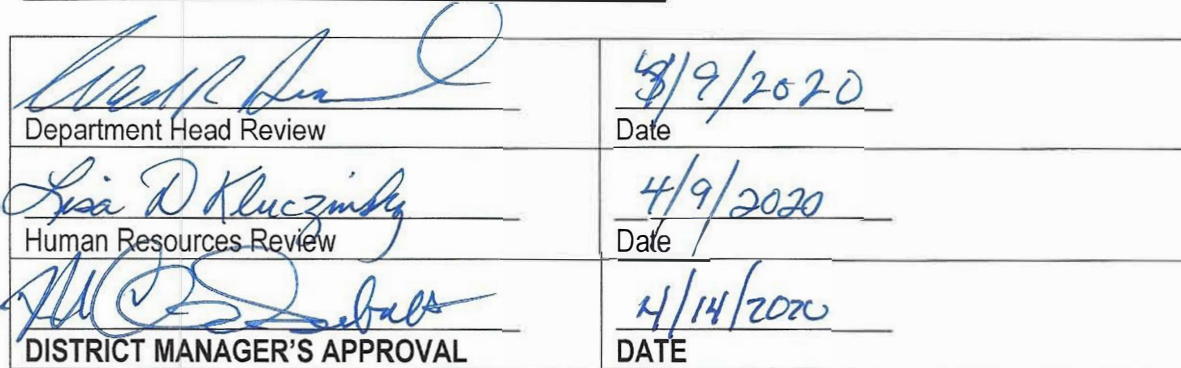 /9/2020
Department Head Review
Date
Lisa D Kluczinsky
4/9/2020
Human Resources Review
Date
4/14/2020
DISTRICT MANAGER'S APPROVAL
DATE